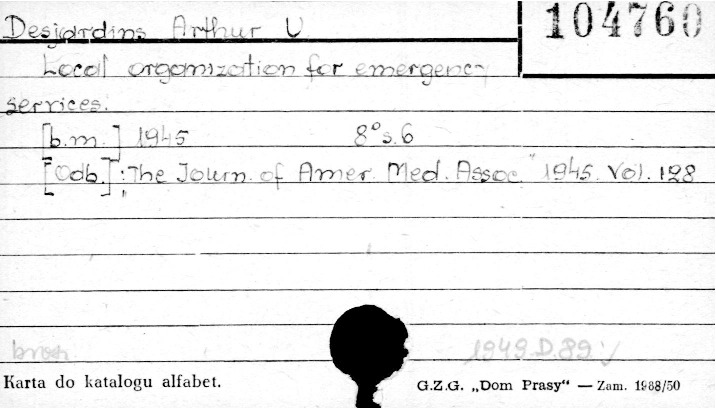 Desjardins Arthur U
104760
Local organization for emergency
services.
[b.m.] 1945 8° s.6
[Odb.]: The Journ. of Amer. Med. Assoc." 1945. Vol. 128
brosz.
1949.D.89
Karta do katalogu alfabet.
G.Z.G. „Dom Prasy“ — Zam. 1988/50